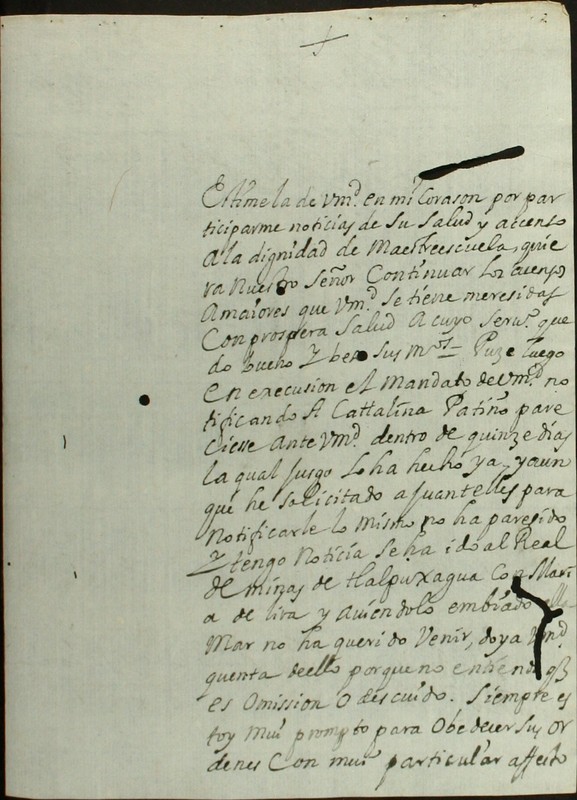 Estimela de Vmd. en mi Corason por par
ticiparme noticias de su salud y acenso
a la dignidad de Maestreescuela, quie
ra Nuestro Señor Continuar los acensos
Amaiores que Vmd. se tiene meresidas
Con prospera Salud A cuyo serv.º que
do bueno Y beso sus m.os Puze luego
en execusion el Mandato de Vmd. no
tificando A Cattalina Patiño pare
ciesse Ante Vmd. dentro de quinze dias
la qual jusgo lo ha hecho ya, y aun
que he solicitado a Juan telles para
Notificarle lo mismo no ha paresido
Y tengo Noticia se ha ido al Real
de minas de tlalpuxagua Con Mari
a de lira y aviendolo embiado
Mar no ha querido Venir, doy a Vmd.
quenta dello porque no entienda q
es Omission O descuido. Siempre es
toy Mui prompto para Obedecer sus or
denes Con mui particular affecto